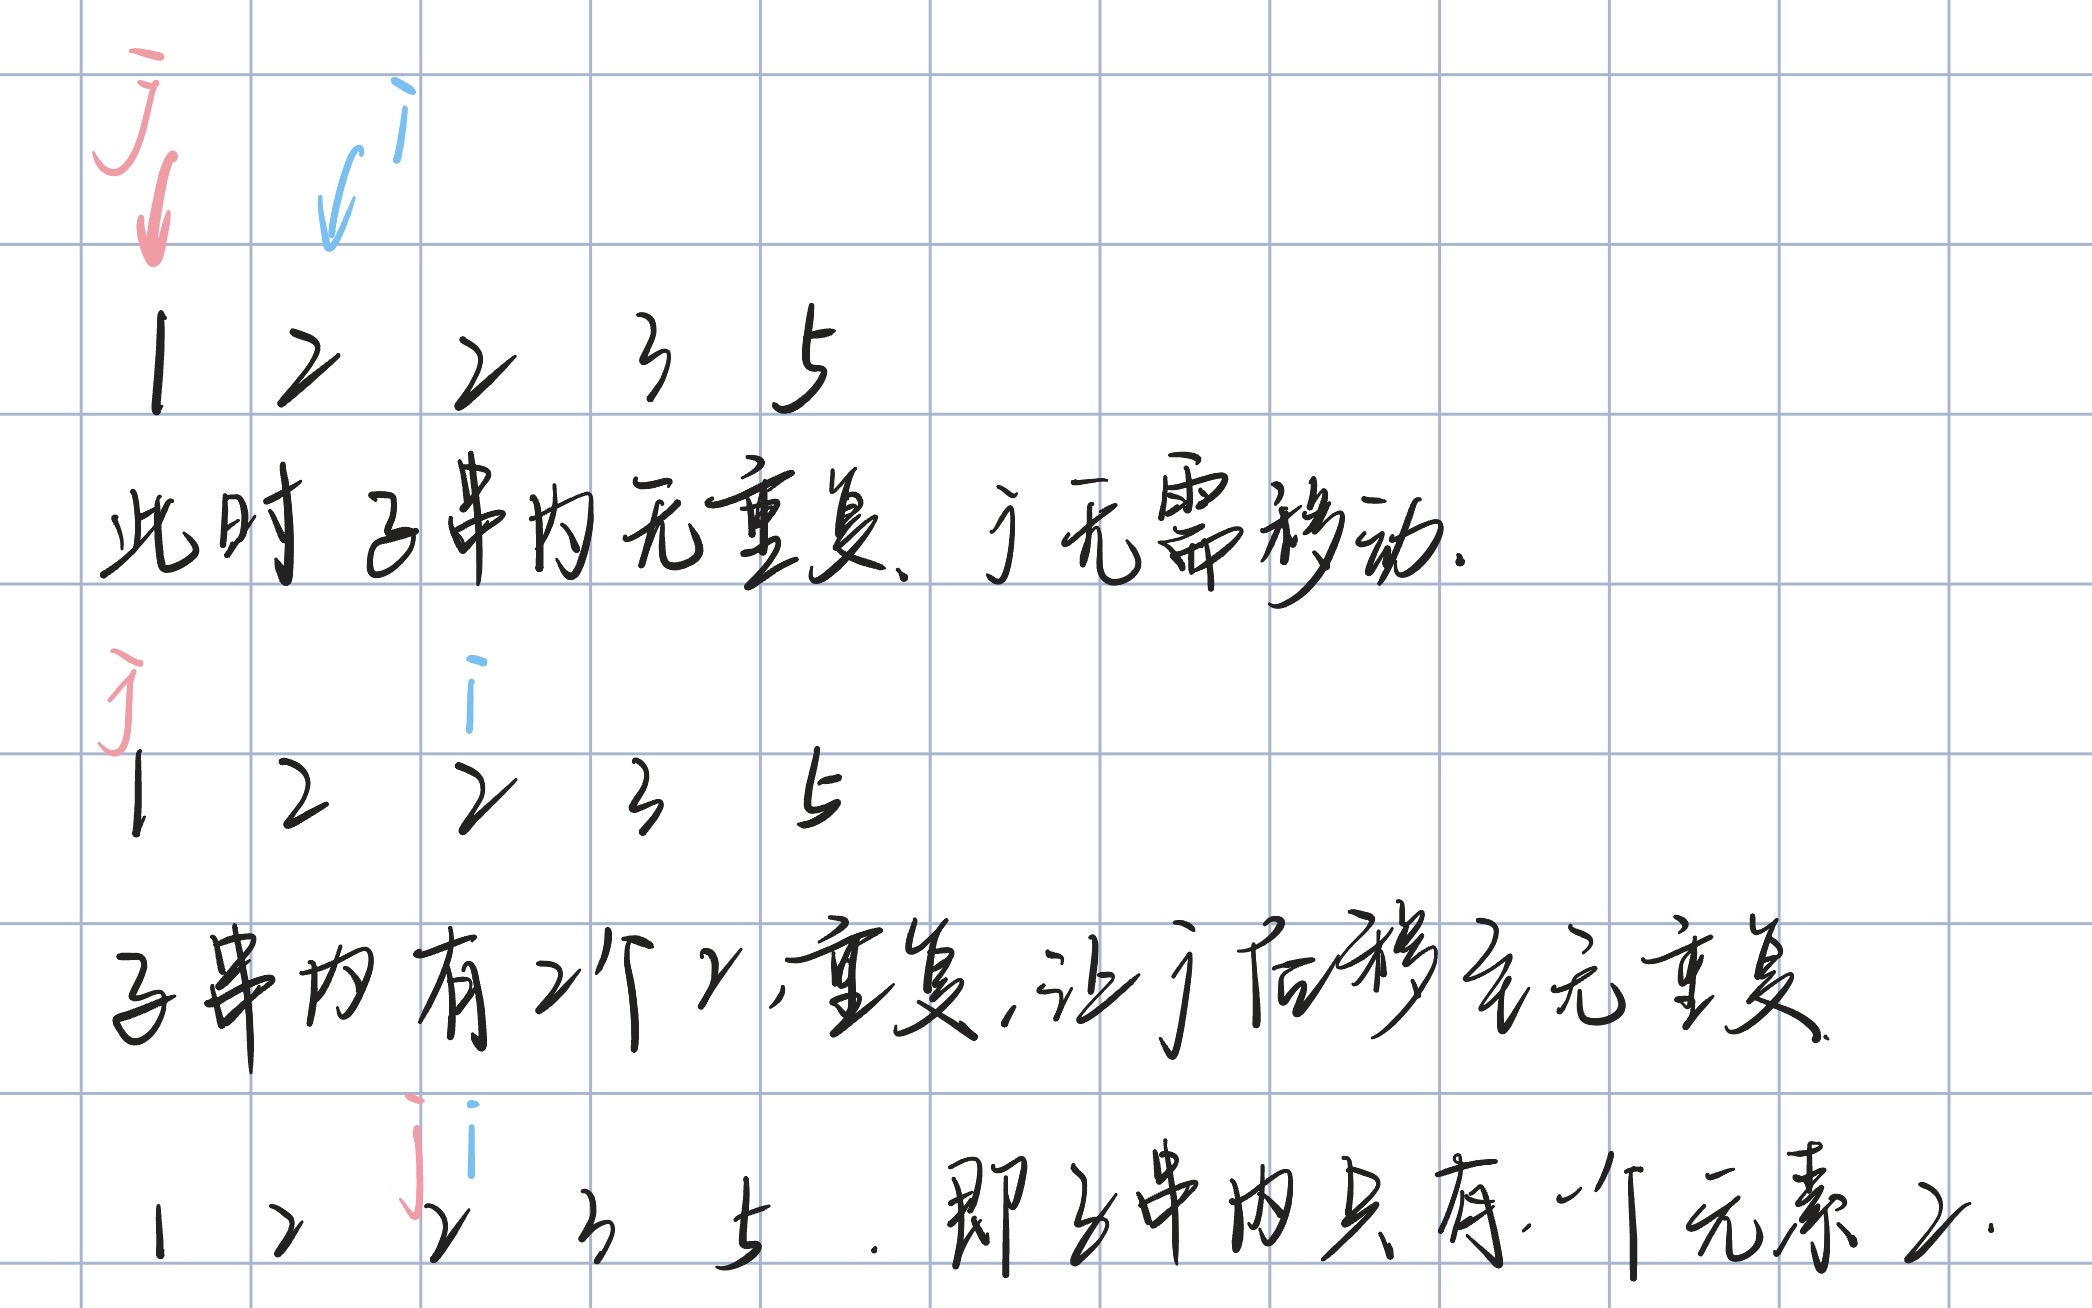 j i
1 2 2 3 5
此时子串内无重复、j无需移动.
j i
1 2 2 3 5
子串内有2个2,重复,让j后移至无重复.
j i
1 2 2 3 5 . 即子串内只有一个元素2.